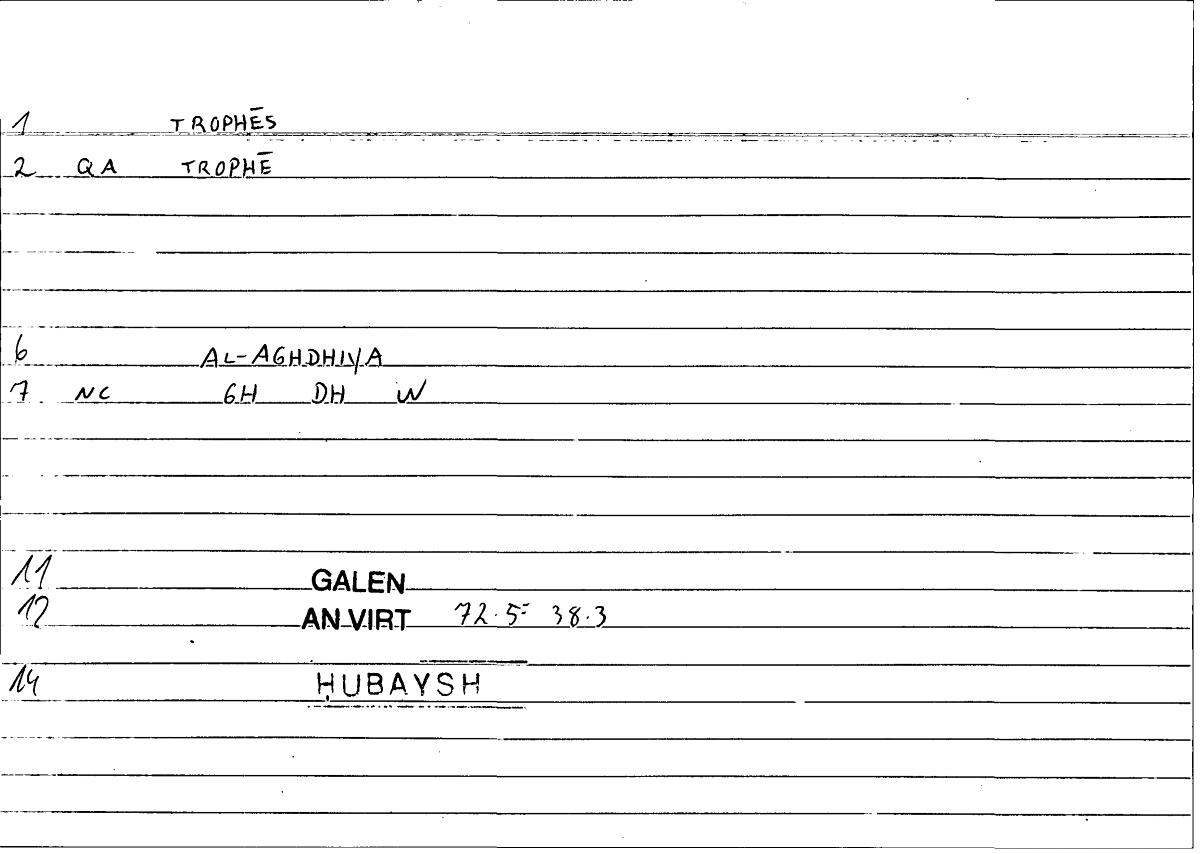 1 TROPHĒS
2 QA TROPHĒ
6 AL-AGHDHIYA
7 NC GH DH W
11 GALEN
12 AN VIRT 72.5= 38.3
14 ḤUBAYSH